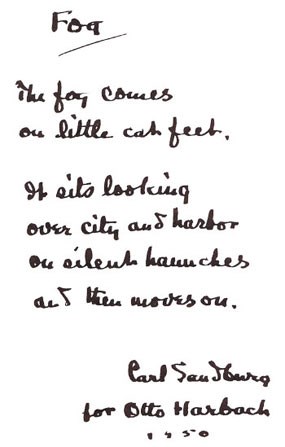 Fog
The fog comes
on little cat feet.
It sits looking
over city and harbor
on silent haunches
and then moves on.
Carl Sandburg
for Otto Harbach
1950